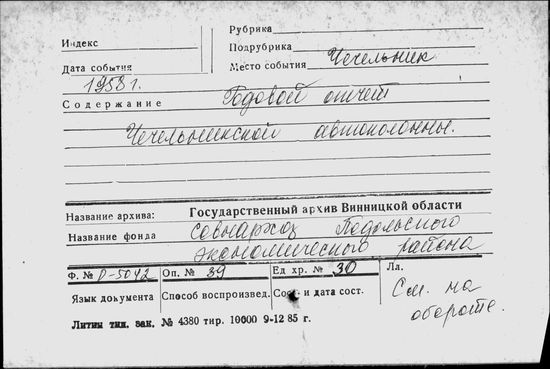 Индекс
Рубрика
Подрубрика
Дата события
Место события Чечельник
1958 г.
Содержание Годовой отчет
Чечельницкой автоколонны.
Название архива: Государственный архив Винницкой области
Название фонда Совнархоз Подольского
экономического района
Ф. № Р-5042 Оп. № 39 Ед хр. № 30 Лл.
Язык документа Способ воспроизвед. Сост. и дата сост. См. на
обороте.
Литин тип. зак. № 4380 тир. 10000 9-12 85 г.